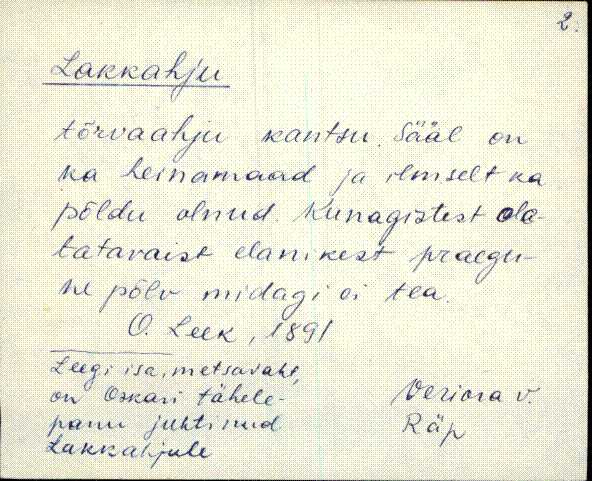 2.
Lakkahju
tõrvaahju kantsu. Sääl on
ka heinamaad ja ilmselt ka
põldu olnud. Kunagistest ole-
tatavaist elanikest praegu-
ne põlv midagi ei tea.
O. Leek, 1891
Leegi isa, metsavaht,
on Oskari tähele-
panu juhtinud
Lakkahjule
Veriora v.
Räp